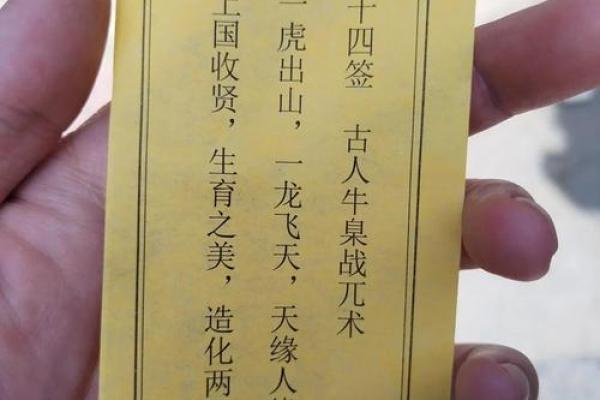 十四签 古人牛臬战兀术
一虎出山，一龙飞天，天缘人
上国收贤，生育之美，造化两